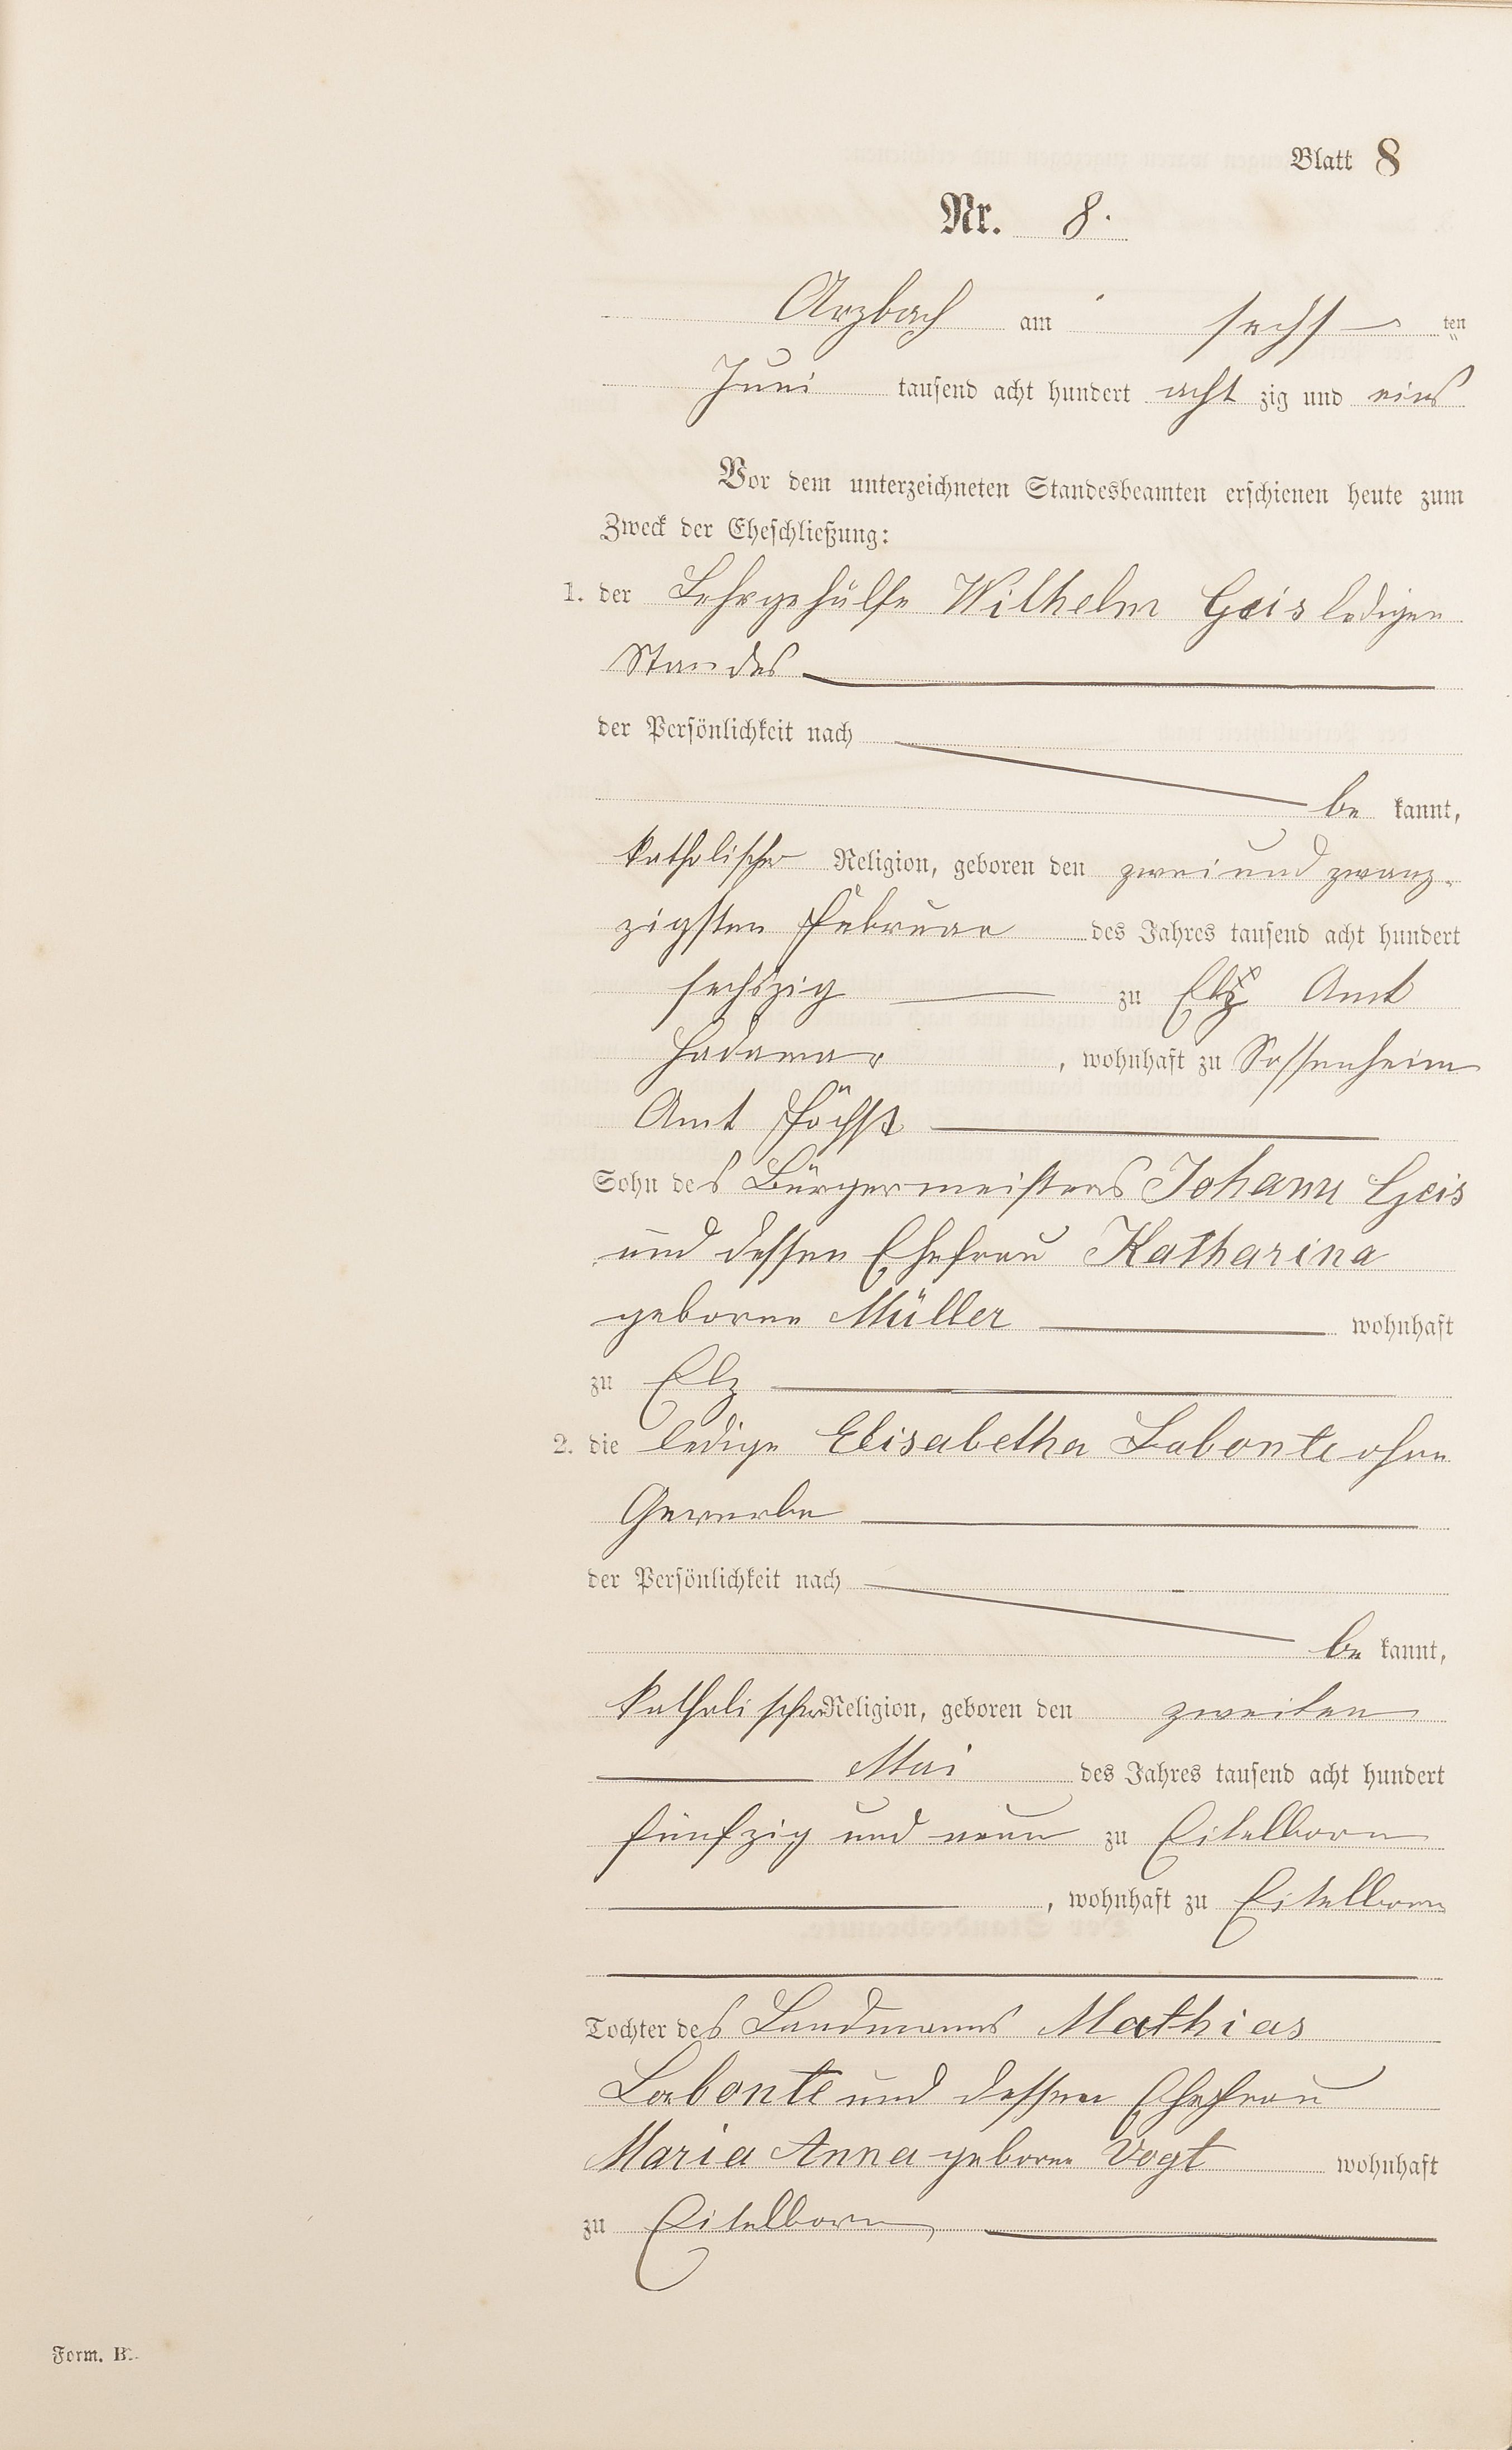 Blatt 8
Nr. 8.
Arzbach am sechs ten
Juni tausend acht hundert acht zig und eins
Vor dem unterzeichneten Standesbeamten erschienen heute zum
Zweck der Eheschließung:
1. der Lehrgehülfe Wilhelm Geis ledigen
Standes
der Persönlichkeit nach
be kannt,
katholischer Religion, geboren den zwei und zwanz-
zigsten Februar des Jahres tausend acht hundert
sechszig zu Elz Amt
Hadamar, wohnhaft zu Sossenheim
Amt Höchst
Sohn des Bürgermeisters Johann Geis
und dessen Ehefrau Katharina
geborne Müller wohnhaft
zu Elz
2. die ledige Elisabetha Labonte ohne
Gewerbe
der Persönlichkeit nach
be kannt,
katholischer Religion, geboren den zweiten
Mai des Jahres tausend acht hundert
fünfzig und neun zu Eitelborn
, wohnhaft zu Eitelborn
Tochter des Landmanns Mathias
Labonte und dessen Ehefrau
Maria Anna geborne Vogt wohnhaft
zu Eitelborn
Form. B.